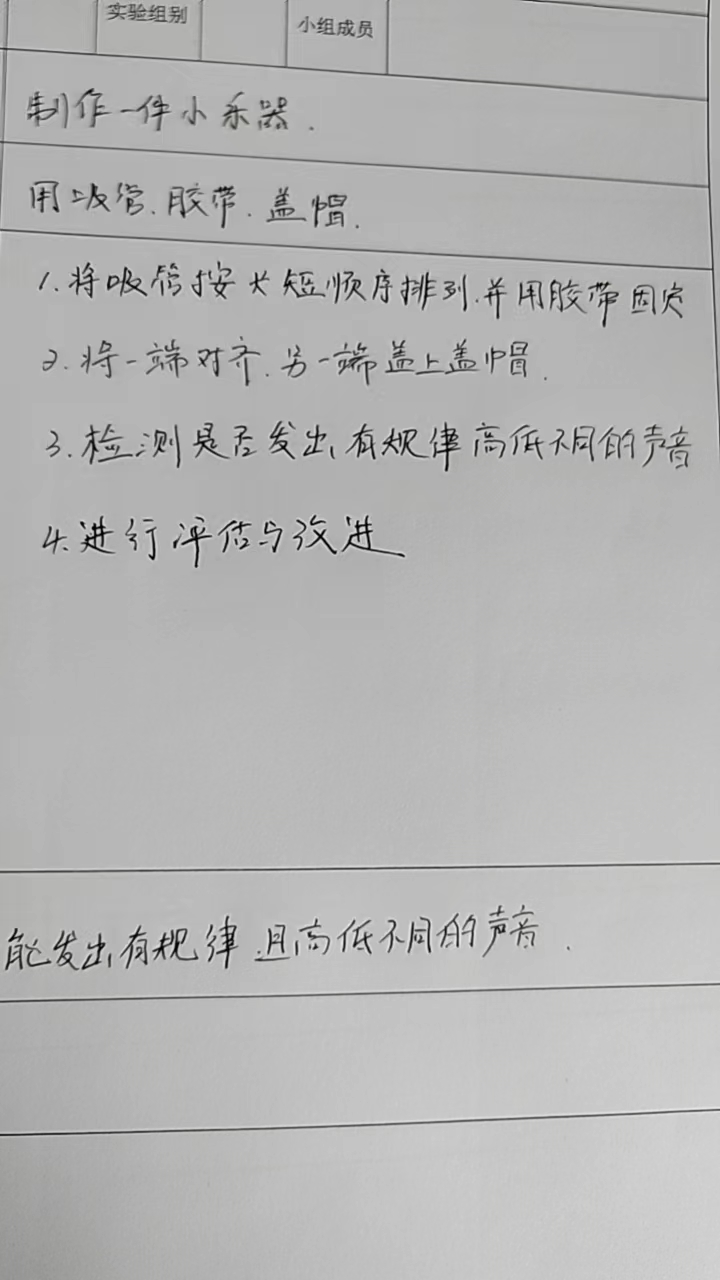 实验组别 小组成员
制作一件小乐器.
用吸管、胶带、盖帽.
1.将吸管按长短顺序排列.并用胶带固定
2.将一端对齐.另一端盖上盖帽.
3.检测是否发出有规律高低不同的声音
4.进行评估与改进
能发出有规律且高低不同的声音.